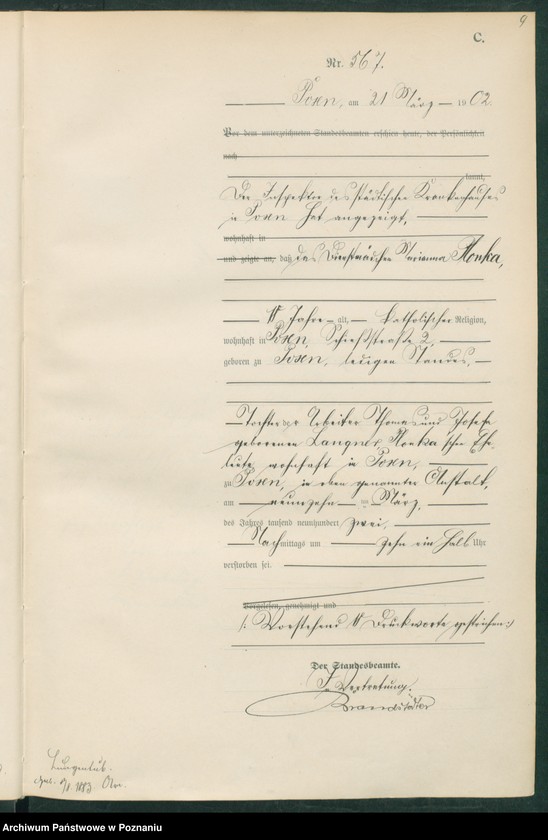 9
C.
Nr. 567.
Posen, am 21 März 1902.
Vor dem unterzeichneten Standesbeamten erschien heute, der Persönlichkeit
nach
kannt,
Der Inspektor des städtischen Krankenhauses
in Posen hat angezeigt,
wohnhaft in
und zeigte an, daß das Dienstmädchen Marianna Nonka,
Jahre alt, katholischer Religion,
wohnhaft in Posen, Schießstraße 2,
geboren zu Posen, ledigen Standes,
Tochter der Arbeiter Thomas und Josefa
geborenen Langner Nonka'schen Ehe-
leute, wohnhaft in Posen,
zu Posen, in oben genannter Anstalt,
am neunzehn ten März,
des Jahres tausend neunhundert zwei,
Nachmittags um zehn ein halb Uhr
verstorben sei.
Vorgelesen, genehmigt und
/: Vorstehend Druckworte gestrichen :/
Der Standesbeamte.
In Vertretung.
Lungentub.
geb. 1883
Archiwum Państwowe w Poznaniu